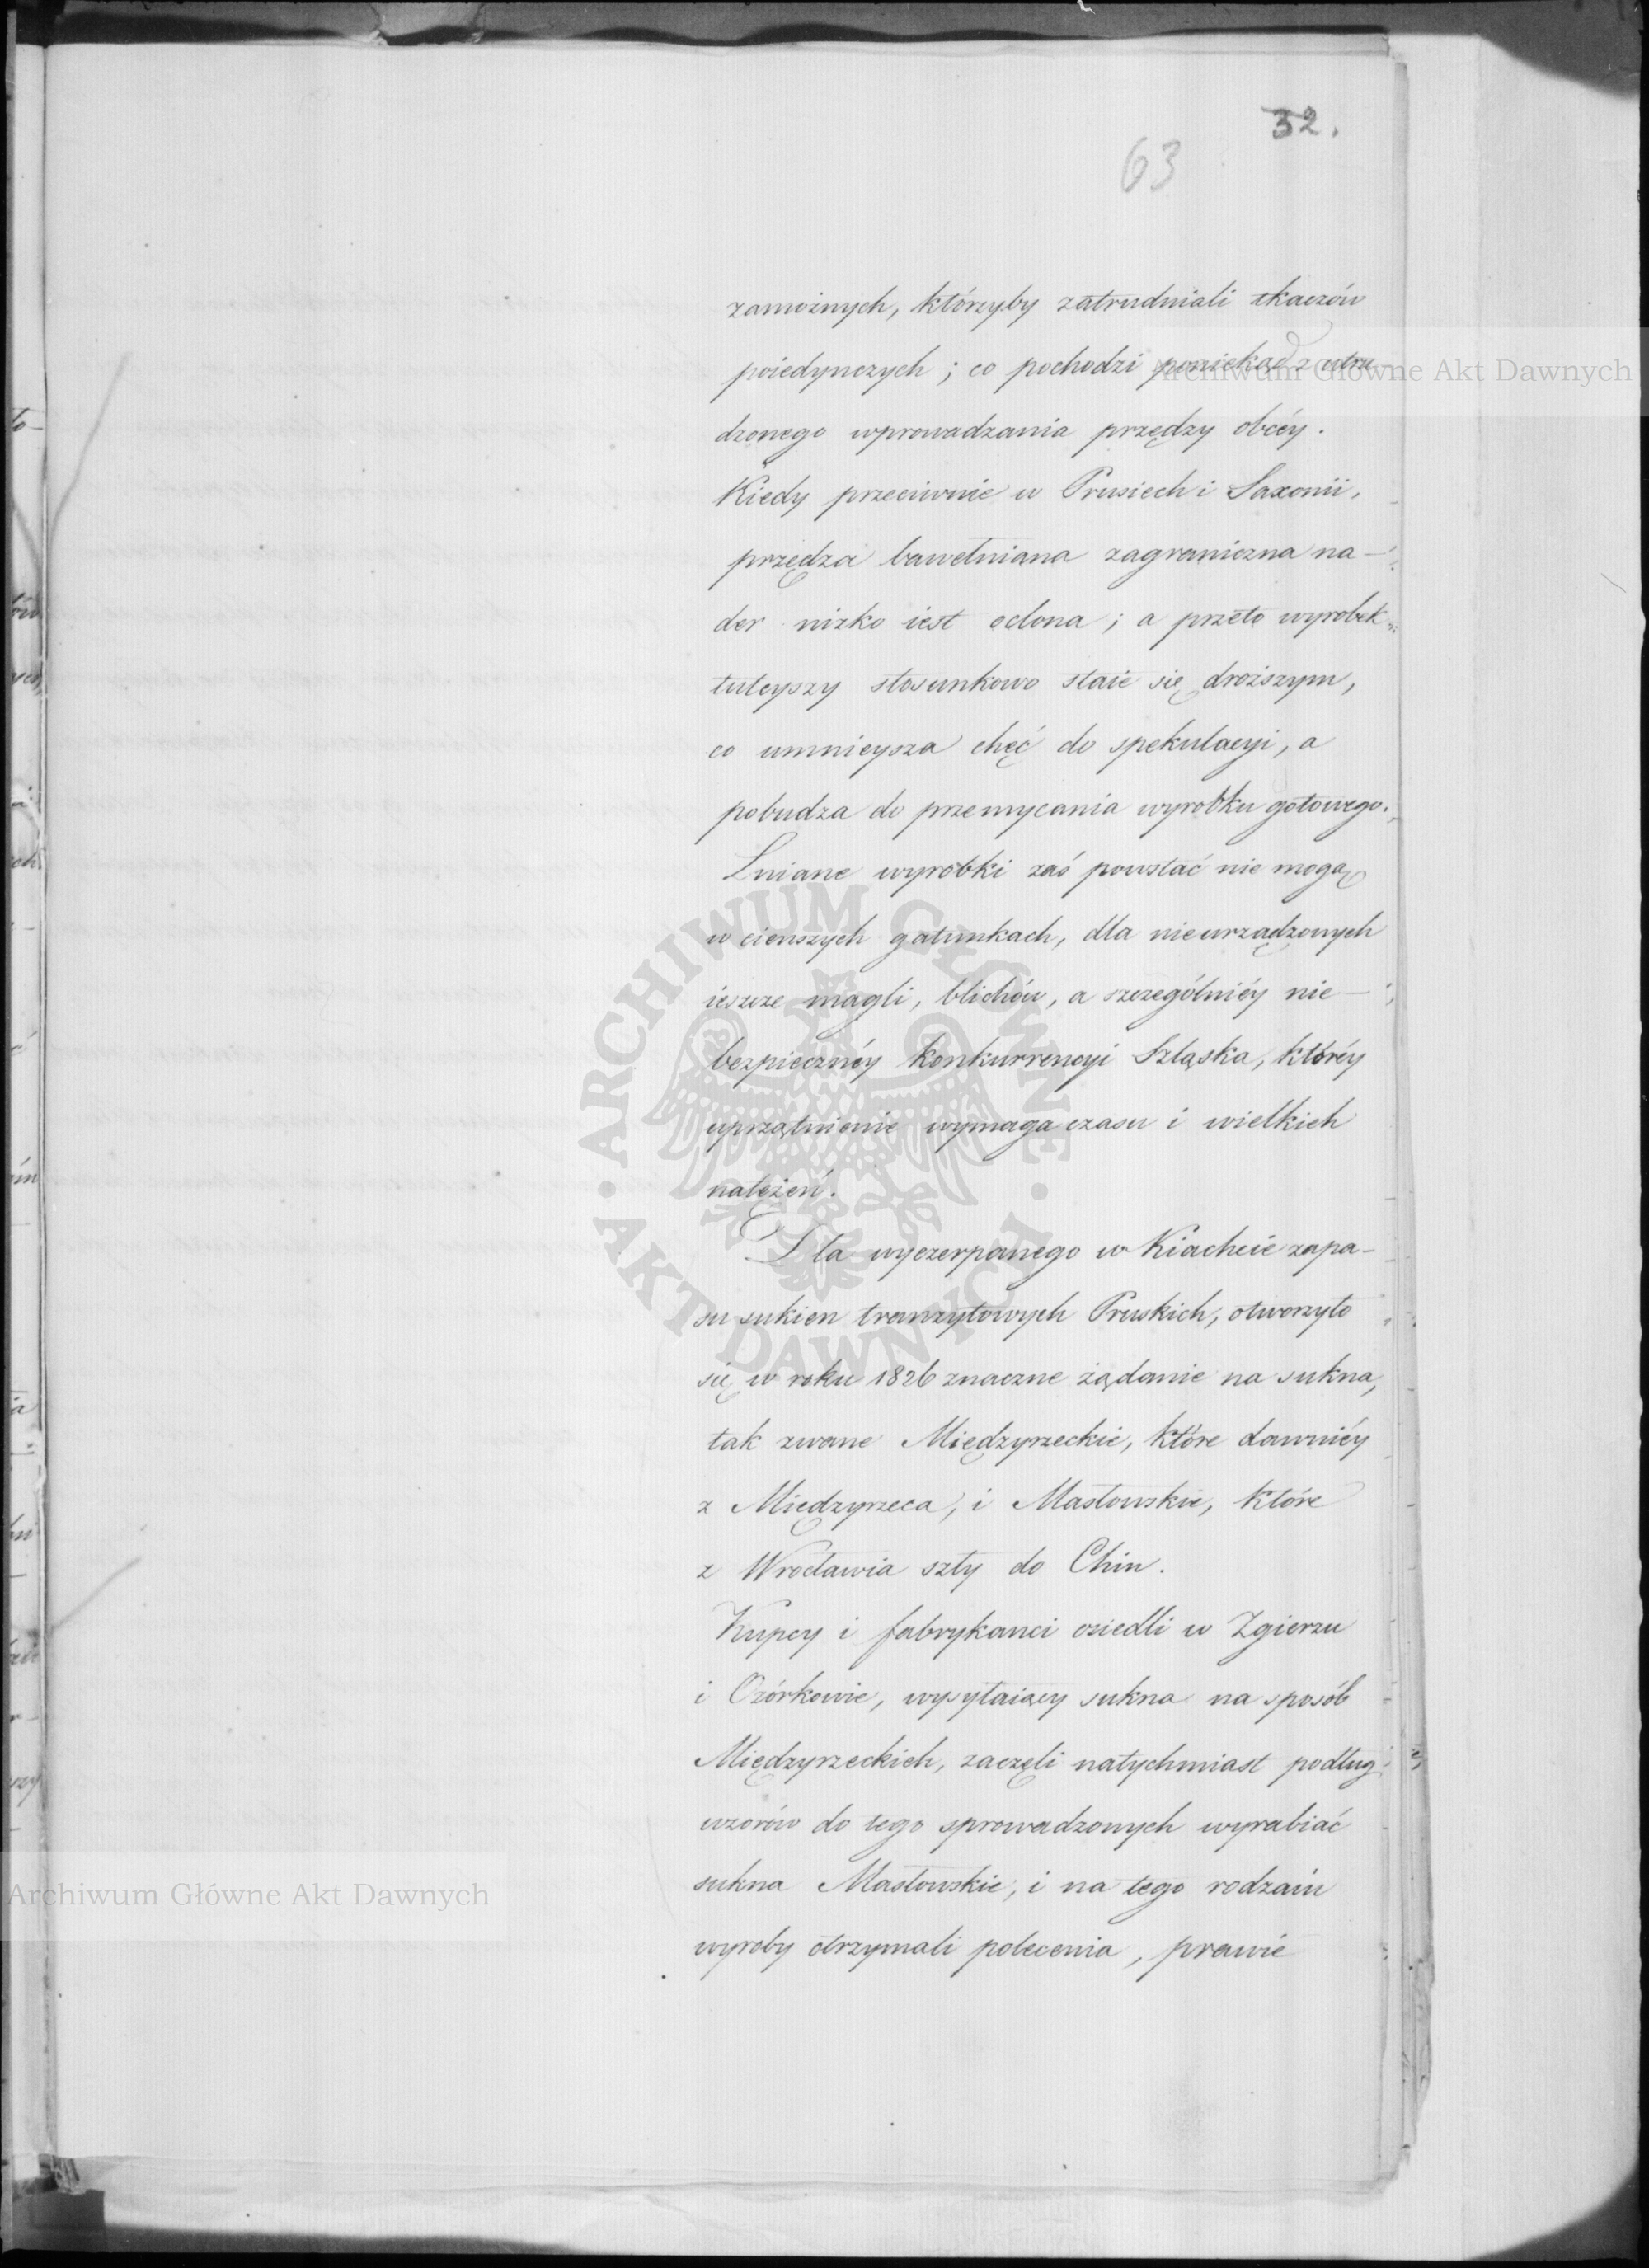 32.
63
zamożnych, którzyby zatrudniali tkaczów
poiedynczych; co pochodzi poniekąd z utru-
dzonego wprowadzania przędzy obcéy.
Kiedy przeciwnie w Prusiech i Saxonii,
przędza bawełniana zagraniczna na-
der nizko iest oclona; a przeto wyrobek
tuteyszy stosunkowo staie się droższym,
co umnieysza chęć do spekulacyi, a
pobudza do przemycania wyrobku gotowego.
Lniane wyrobki zaś powstać nie mogą
w cienszych gatunkach, dla nieurządzonych
ieszcze magli, blichów, a szczególniéy nie-
bezpiecznéy konkurrencyi Szląska, któréy
uprzątnienie wymaga czasu i wielkich
natężeń.
Dla wyczerpanego w Kiachcie zapa-
su sukien tranzytowych Pruskich, otworzyło
się w roku 1826 znaczne żądanie na sukna,
tak zwane Międzyrzeckie, które dawniéy
z Międzyrzeca, i Masłowskie, które
z Wrocławia szły do Chin.
Kupcy i fabrykanci osiedli w Zgierzu
i Ozórkowie, wysyłaiący sukna na sposób
Międzyrzeckich, zaczęli natychmiast podług
wzorów do tego sprowadzonych wyrabiać
sukna Masłowskie, i na tego rodzaiu
wyroby otrzymali polecenia, prawie
Archiwum Główne Akt Dawnych
ARCHIWUM GŁÓWNE AKT DAWNYCH
Archiwum Główne Akt Dawnych